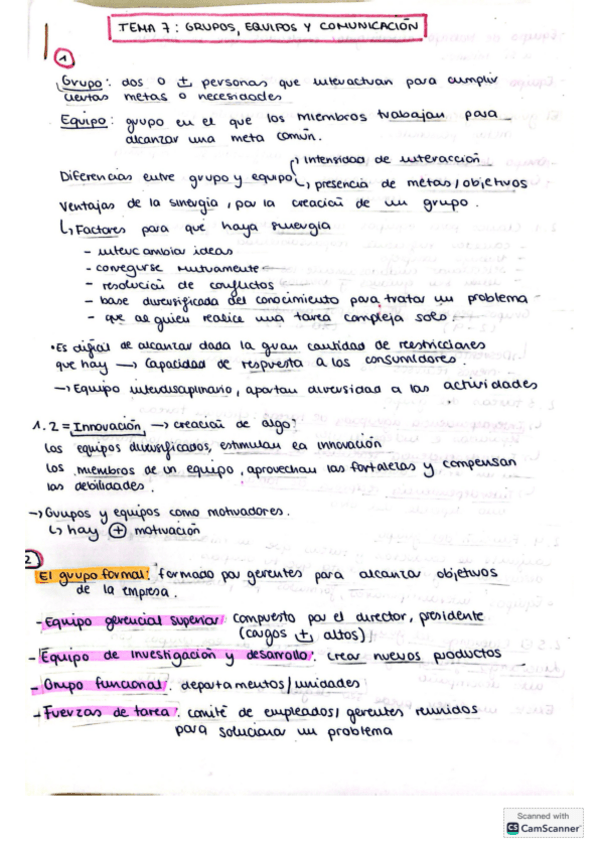 TEMA 7: GRUPOS, EQUIPOS Y COMUNICACIÓN
1
Grupo: dos o ± personas que interactuan para cumplir
ciertas metas o necesidades
Equipo: grupo en el que los miembros trabajan para
alcanzar una meta común.
intensidad de interacción
Diferencias entre grupo y equipo
presencia de metas/objetivos
Ventajas de la sinergia, por la creación de un grupo.
Factores para que haya sinergia
- intercambiar ideas
- corregirse mutuamente
- resolución de conflictos
- base diversificada del conocimiento para tratar un problema
- que alguien realice una tarea compleja solo.
• Es difícil de alcanzar dada la gran cantidad de restricciones
que hay → Capacidad de respuesta a los consumidores.
→ Equipo interdisciplinario, aportan diversidad a las actividades
1.2 = Innovación, → creación de algo
Los equipos diversificados, estimulan la innovación
Los miembros de un equipo, aprovechan las fortalezas y compensan
las debilidades.
→ Grupos y equipos como motivadores.
↳ hay + motivación
2
El grupo formal: formado por gerentes para alcanzar objetivos
de la empresa.
- Equipo gerencial superior: compuesto por el director, presidente
(cargos ± altos)
- Equipo de investigación y desarrollo: crear nuevos productos
- Grupo funcional: departamentos/unidades
- Fuerzas de tarea: comité de empleados/gerentes reunidos
para solucionar un problema
Scanned with
CS CamScanner